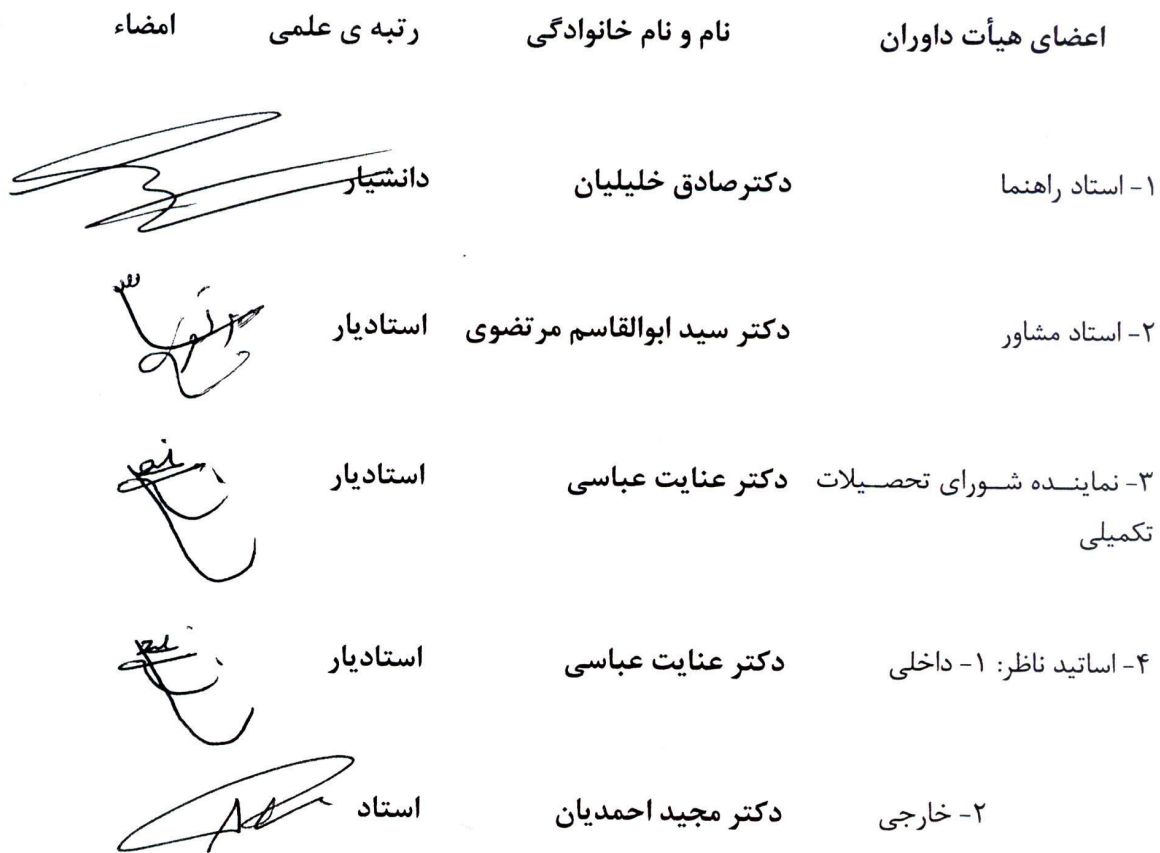 اعضای هیأت داوران نام و نام خانوادگی رتبه ی علمی امضاء
۱- استاد راهنما دکترصادق خلیلیان دانشیار
۲- استاد مشاور دکتر سید ابوالقاسم مرتضوی استادیار
۳- نماینــده شــورای تحصــیلات دکتر عنایت عباسی استادیار
تکمیلی
۴- اساتید ناظر: ۱- داخلی دکتر عنایت عباسی استادیار
۲- خارجی دکتر مجید احمدیان استاد